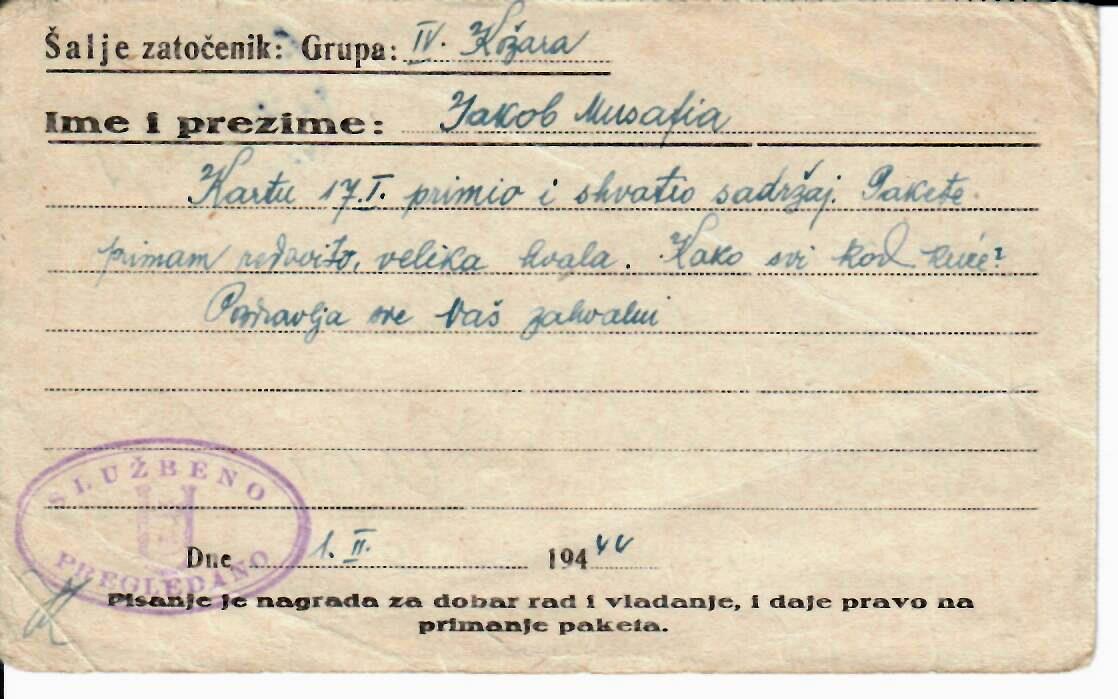 Šalje zatočenik: Grupa: IV. Kožara
Ime i prezime: Jakob Musafia
Kartu 17.I. primio i shvatio sadržaj. Pakete
primam redovito, velika hvala. Kako svi kod kuće?
Pozdravlja sve Vaš zahvalni
SLUŽBENO
PREGLEDANO
Dne 1. II. 1944
Pisanje je nagrada za dobar rad i vladanje, i daje pravo na
primanje paketa.